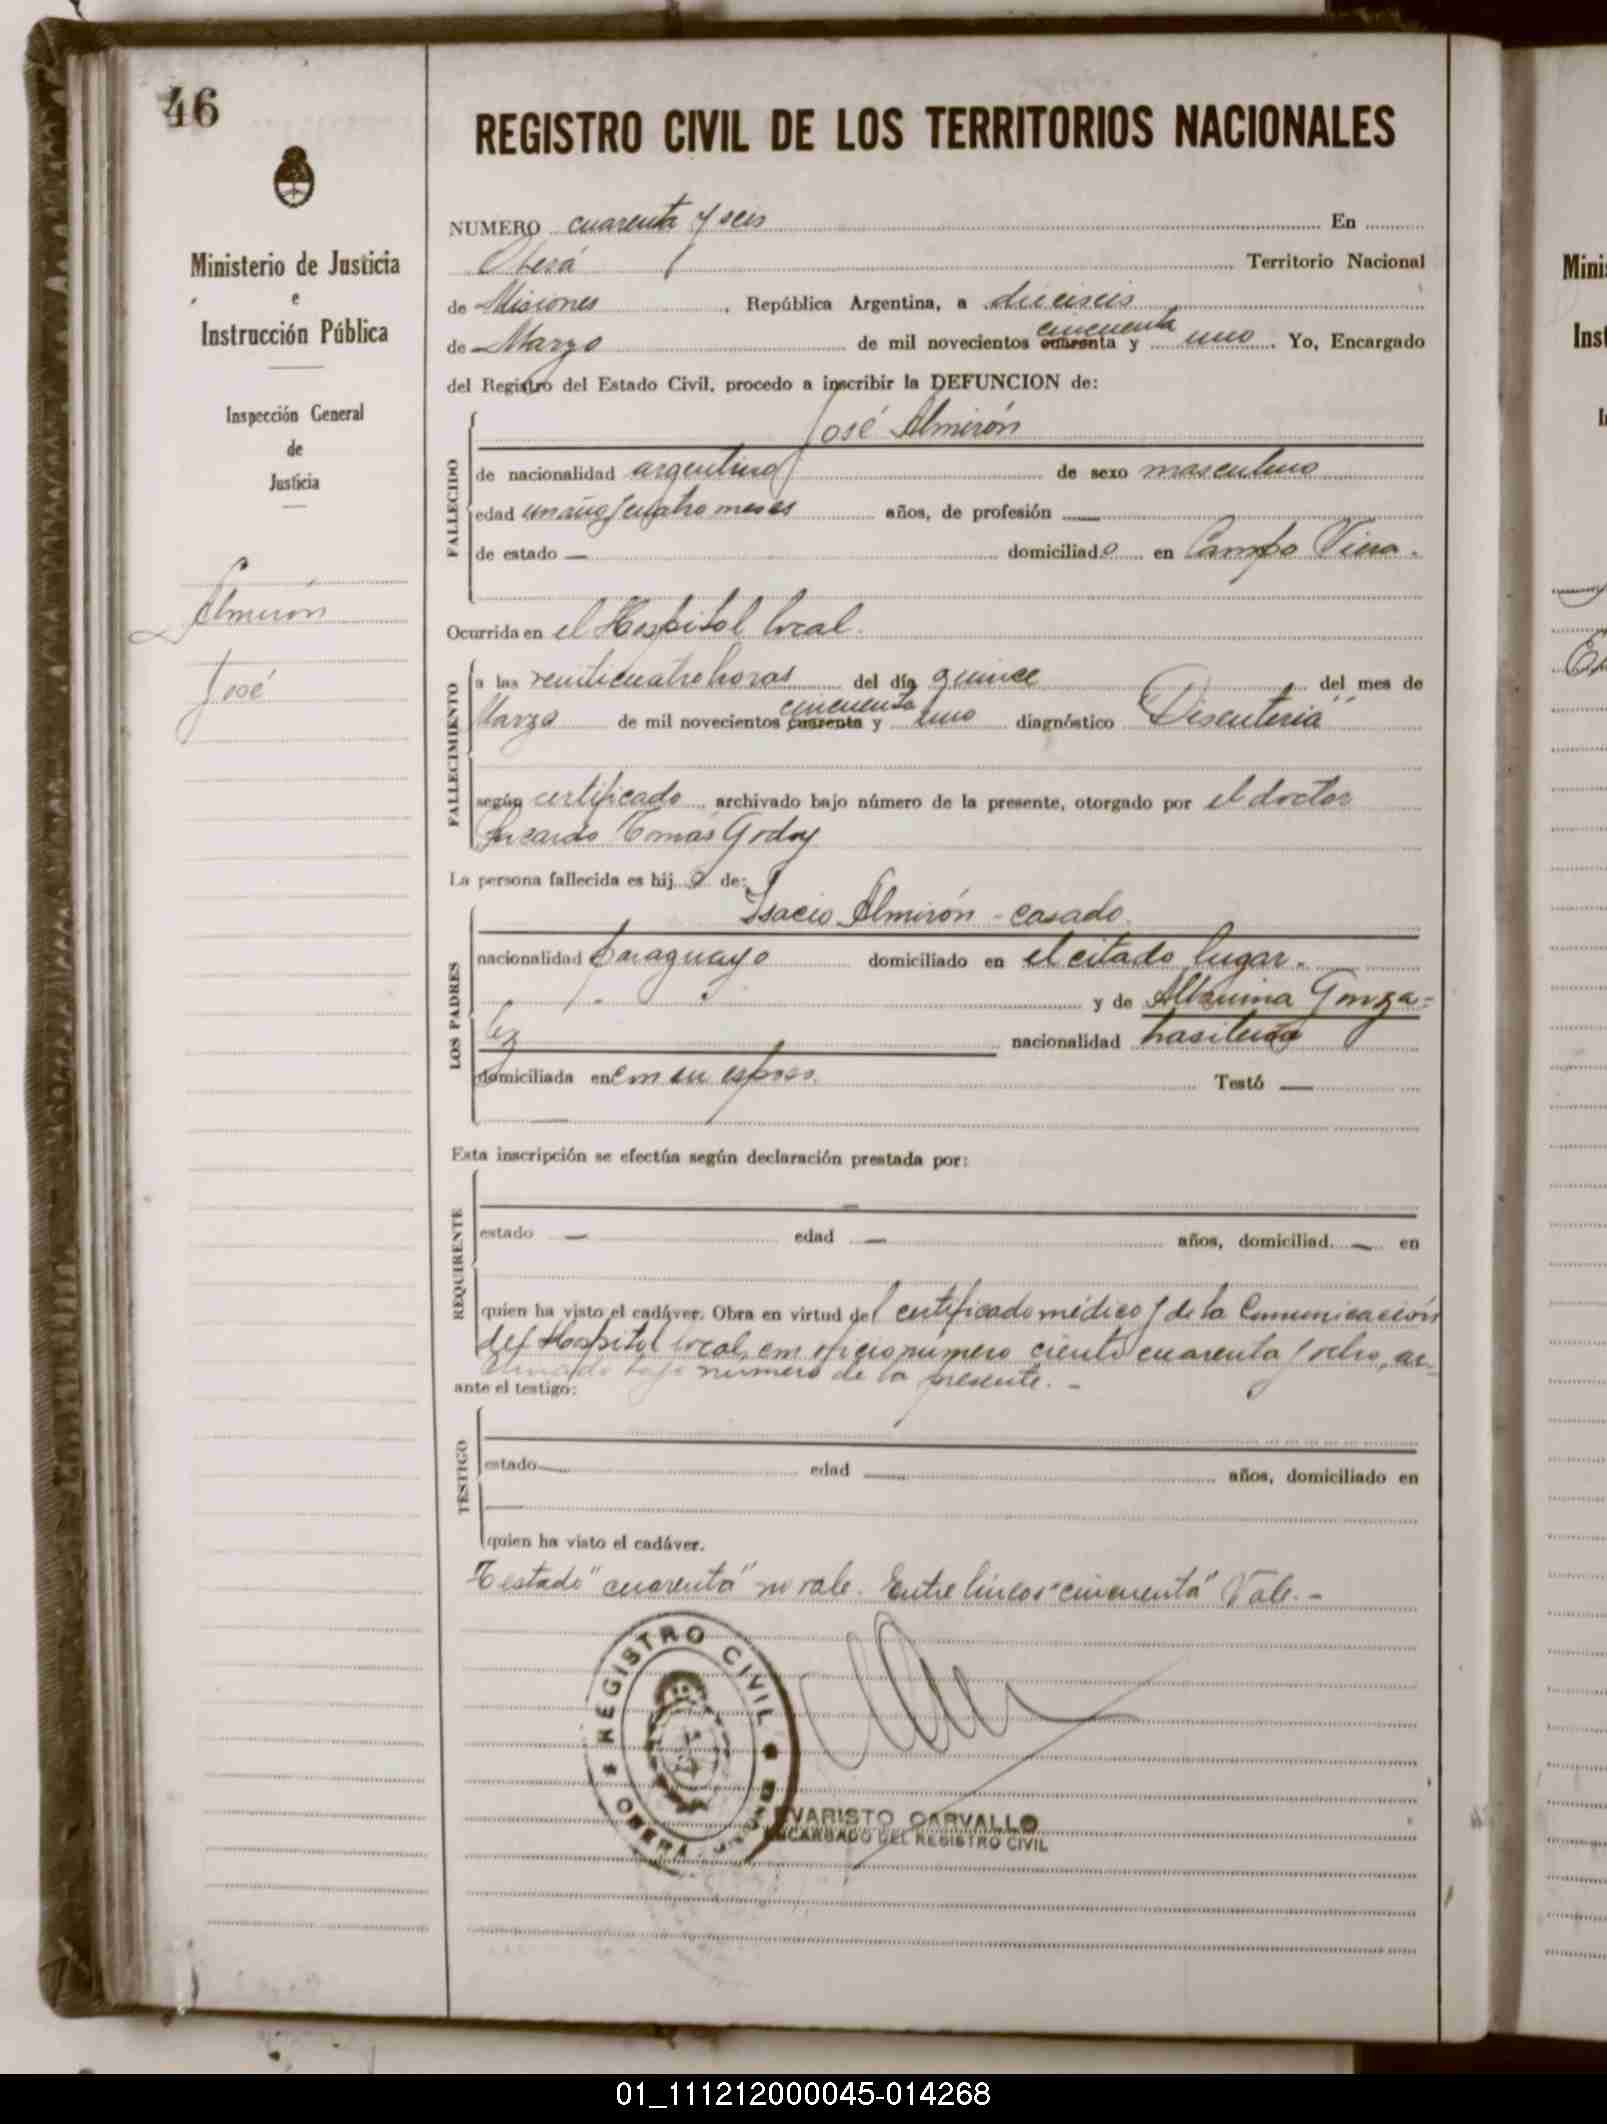 46
Ministerio de Justicia
e
Instrucción Pública
Inspección General
de
Justicia
Almirón
José
REGISTRO CIVIL DE LOS TERRITORIOS NACIONALES
NUMERO cuarenta y seis En
Oberá Territorio Nacional
de Misiones, República Argentina, a dieciseis
cincuenta
de Marzo de mil novecientos cuarenta y uno. Yo, Encargado
del Registro del Estado Civil, procedo a inscribir la DEFUNCION de:
FALLECIDO
José Almirón
de nacionalidad argentino de sexo masculino
edad un año y cuatro meses años, de profesión —
de estado — domiciliado en Campo Viera.
Ocurrida en el Hospital local.
FALLECIMIENTO
a las veinticuatro horas del día quince del mes de
cincuenta
Marzo de mil novecientos cuarenta y uno diagnóstico "Disenteria"
según certificado, archivado bajo número de la presente, otorgado por el doctor
Tomás Godoy
La persona fallecida es hijo de:
LOS PADRES
Isacio Almirón - casado
nacionalidad paraguayo domiciliado en el citado lugar.
y de Albina Gonza=
lez nacionalidad brasilena
domiciliada en con su esposo. Testó —
Esta inscripción se efectúa según declaración prestada por:
REQUIRENTE
—
estado — edad — años, domiciliad — en
quien ha visto el cadáver. Obra en virtud del certificado médico y de la Comunicación
del Hospital local, en oficio numero ciento cuarenta y ocho, ar-
chivado bajo número de la presente. -
ante el testigo:
TESTIGO
estado — edad — años, domiciliado en
—
quien ha visto el cadáver.
Testado "cuarenta" no vale. Entre lineas "cincuenta" Vale.-
* REGISTRO CIVIL *
OBERA
EVARISTO CARVALLO
ENCARGADO DEL REGISTRO CIVIL
Mini
Inst
01_111212000045-014268